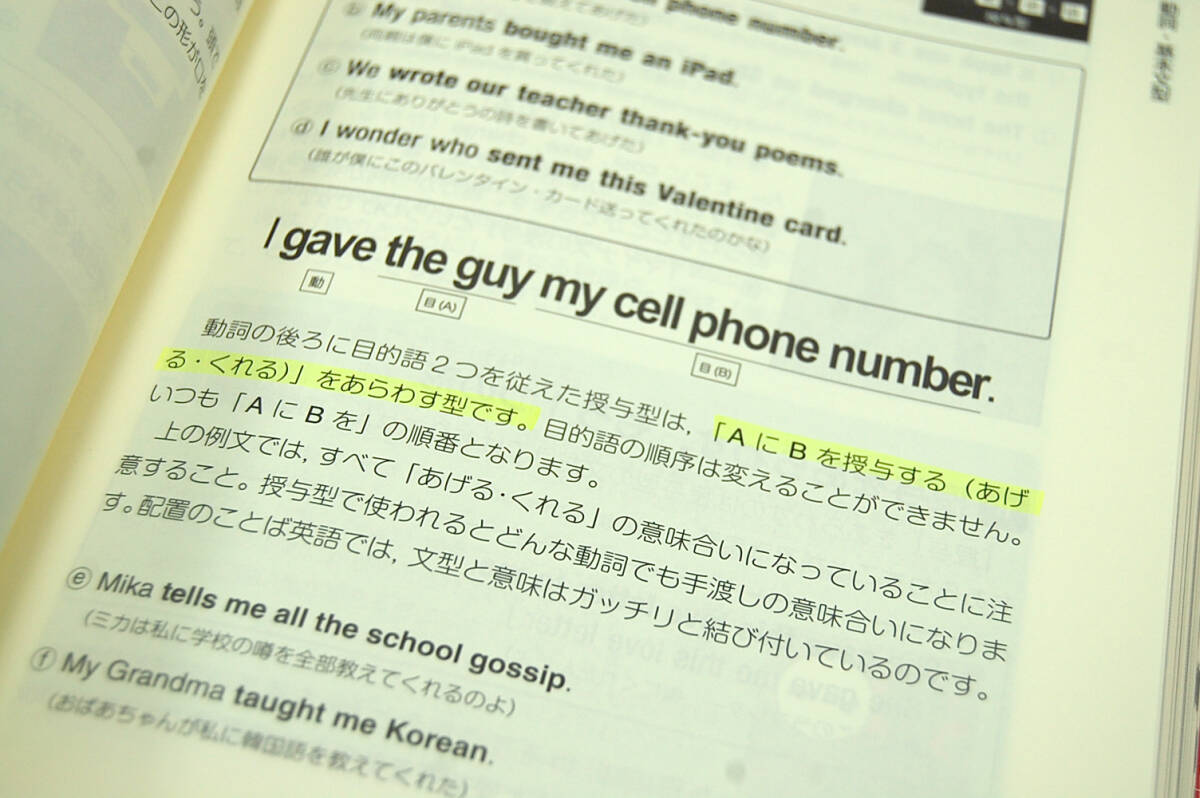 phone number.
ⓑ My parents bought me an iPad.
(両親は僕に iPad を買ってくれた)
ⓒ We wrote our teacher thank-you poems.
(先生にありがとうの詩を書いてあげた)
ⓓ I wonder who sent me this Valentine card.
(誰が僕にこのバレンタイン・カード送ってくれたのかな)
I gave the guy my cell phone number.
動 目(A) 目(B)
動詞の後ろに目的語2つを従えた授与型は,「AにBを授与する(あげ
る・くれる)」をあらわす型です。目的語の順序は変えることができません。
いつも「AにBを」の順番となります。
上の例文では,すべて「あげる・くれる」の意味合いになっていることに注
意すること。授与型で使われるとどんな動詞でも手渡しの意味合いになりま
す。配置のことば英語では,文型と意味はガッチリと結び付いているのです。
ⓔ Mika tells me all the school gossip.
(ミカは私に学校の噂を全部教えてくれるのよ)
ⓕ My Grandma taught me Korean.
(おばあちゃんが私に韓国語を教えてくれた)